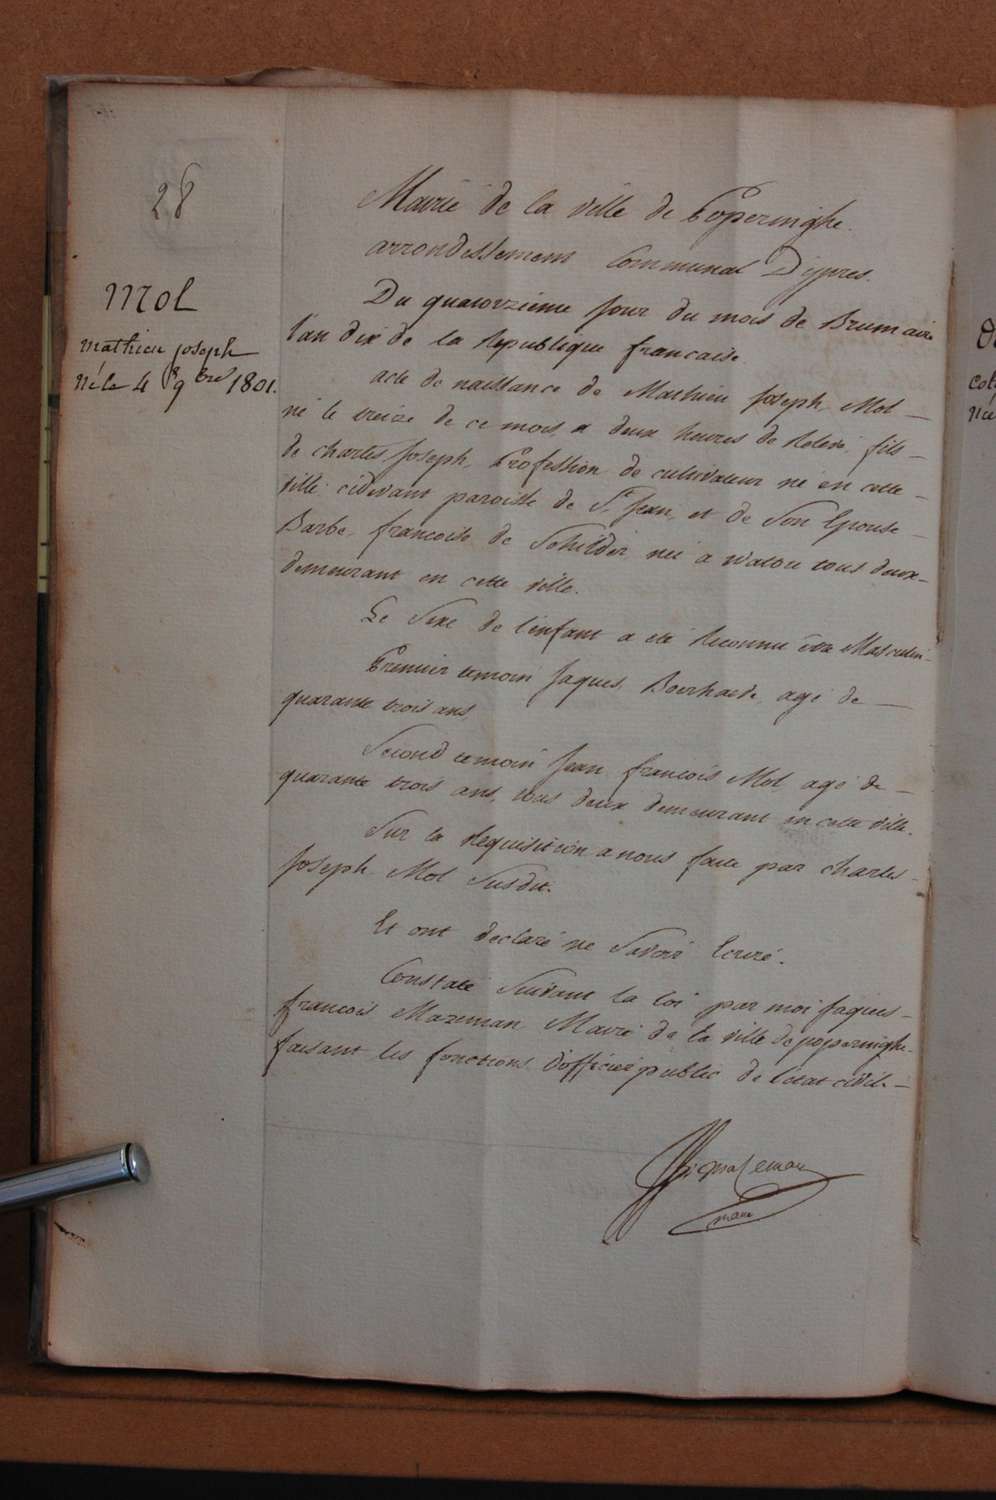 28
Mol
mathieu joseph
Né le 4 9bre 1801.
Mairie de la ville de Poperinghe.
arrondissement Communal D'ypres.
Du quatorzieme jour du mois de Brumaire
l'an dix de la Republique francaise
acte de naissance de Mathieu Joseph Mol
né le treize de ce mois a deux heures de Relevé, fils
de charles Joseph, Profession de cultivateur né en cette
ville cidevant paroisse de St Jean, et de Son Epouse
Barbe, francoise de Schilder née a Watou tous deux
demeurant en cette ville.
Le Sexe de l'enfant a été Reconnu être Masculin
Premier temoin Jaques, agé de
quarante trois ans,
Second temoin Jean francois Mol agé de
quarante trois ans, tous deux demeurant en cette ville.
Sur la Requisition a nous faite par charles
Joseph Mol Susdit.
Et ont declaré ne Savoir Ecrire.
Constaté Suivant la loi par moi Jaques
francois Mazeman Maire de la ville de poperinghe
faisant les fonctions D'officier public de l'etat civil.
maire
Oc
col
née